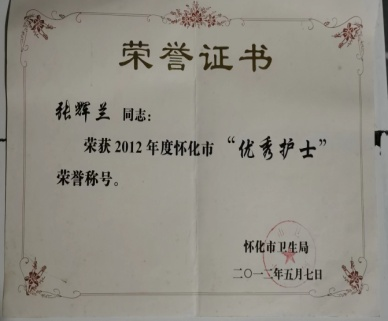 荣誉证书
张辉兰 同志：
荣获2012年度怀化市“优秀护士”
荣誉称号。
怀化市卫生局
二〇一二年五月七日